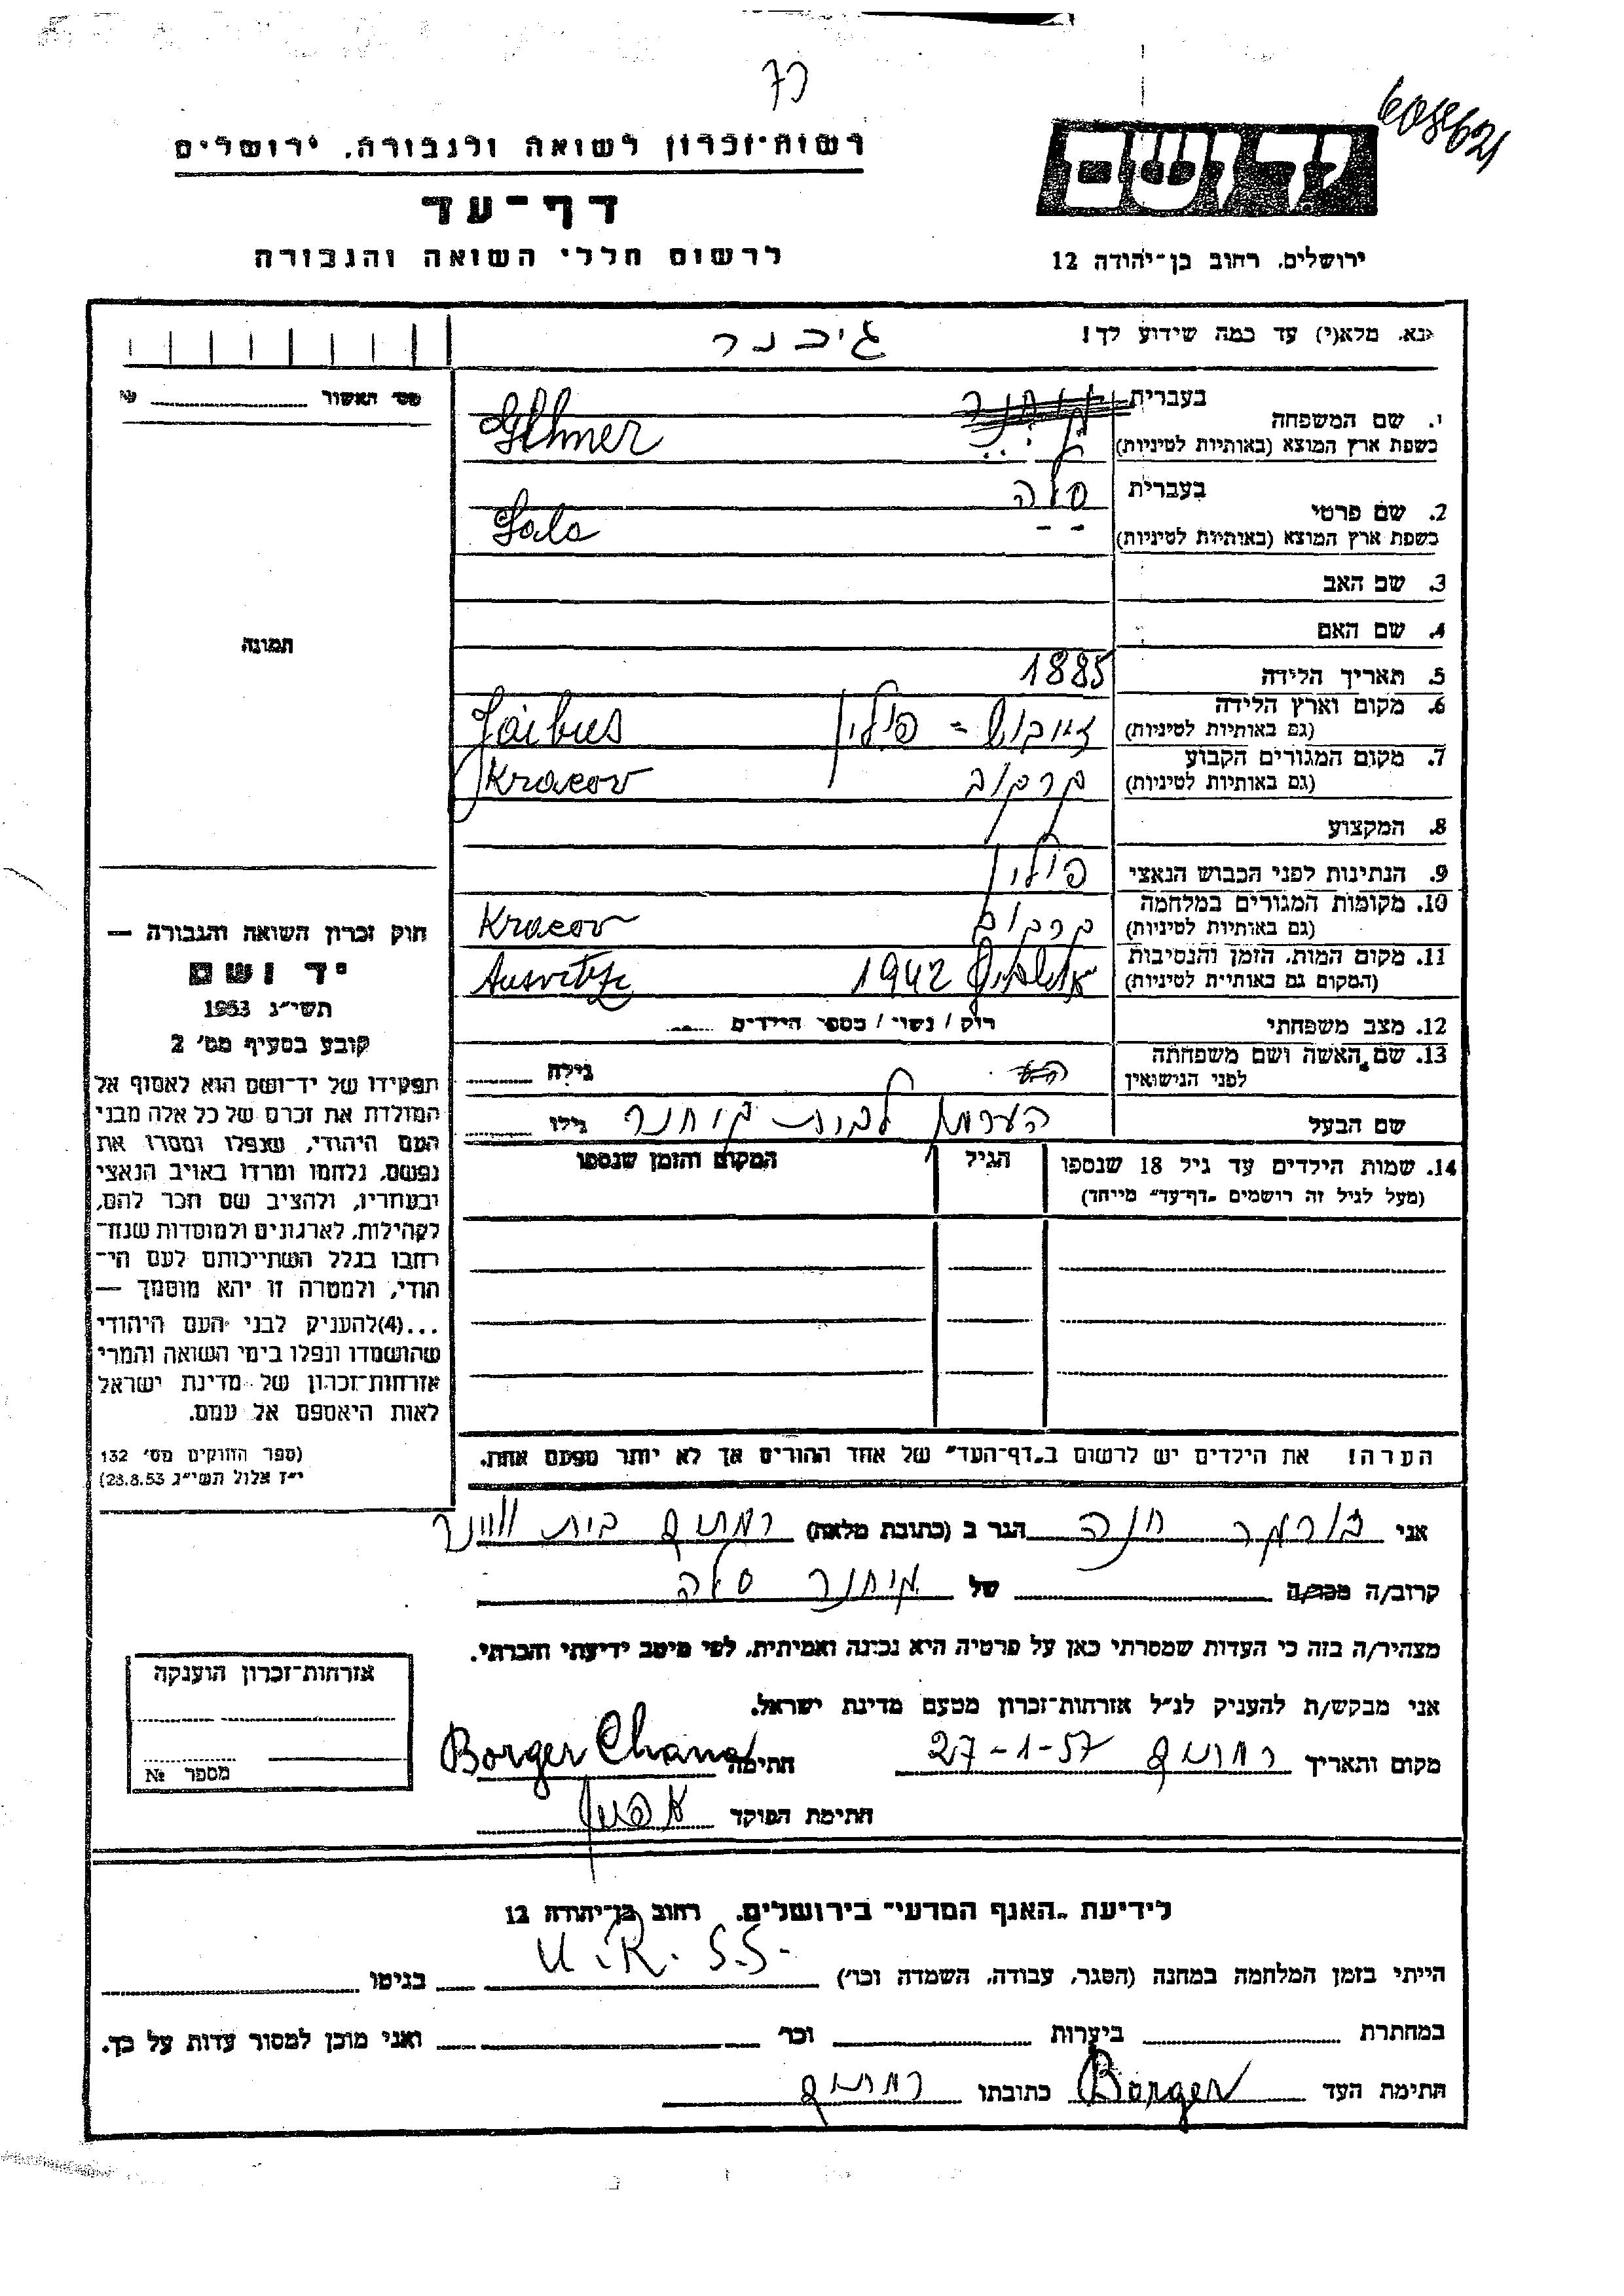 כד
608621
רשות-זכרון לשואה ולגבורה, ירושלים
יד ושם
דף-עד
לרשום חללי השואה והגבורה
ירושלים, רחוב בן-יהודה 12
נא, מלא(י) עד כמה שידוע לך!
מס' האשור № 
1. שם המשפחה
בעברית
כשפת ארץ המוצא (באותיות לטיניות)
2. שם פרטי
בעברית סלה
כשפת ארץ המוצא (באותיות לטיניות) Sala
3. שם האב
4. שם האם
5. תאריך הלידה 1885
6. מקום וארץ הלידה
(גם באותיות לטיניות) פולין
7. מקום המגורים הקבוע
(גם באותיות לטיניות) קרקוב Kracov
8. המקצוע
9. הנתינות לפני הכבוש הנאצי פולין
10. מקומות המגורים במלחמה
(גם באותיות לטיניות) קרקוב Kracov
11. מקום המות, הזמן והנסיבות
(המקום גם באותיות לטיניות) 1942
12. מצב משפחתי רוק / נשוי / מספר הילדים
13. שם האשה ושם משפחתה
לפני הנישואין גילה
שם הבעל גילו
תמונה
חוק זכרון השואה והגבורה —
יד ושם
תשי"ג 1953
קובע בסעיף מס' 2
תפקידו של יד-ושם הוא לאסוף אל
המולדת את זכרם של כל אלה מבני
העם היהודי, שנפלו ומסרו את
נפשם, נלחמו ומרדו באויב הנאצי
ובעוזריו, ולהציב שם וזכר להם,
לקהילות, לארגונים ולמוסדות שנח-
רבו בגלל השתייכותם לעם הי-
הודי, ולמטרה זו יהא מוסמך —
...(4)להעניק לבני העם היהודי
שהושמדו ונפלו בימי השואה והמרי
אזרחות-זכרון של מדינת ישראל
לאות היאספם אל עמם.
(ספר החוקים מס' 132
י"ז אלול תשי"ג 28.8.53)
14. שמות הילדים עד גיל 18 שנספו
(מעל לגיל זה רושמים „דף-עד" מיוחד)
הגיל
המקום והזמן שנספו
הערה! את הילדים יש לרשום ב„דף-העד" של אחד ההורים אך לא יותר מפעם אחת.
אני חנה הגר ב (כתובת מלאה)
קרוב/ה מכר/ה של סלה
מצהיר/ה בזה כי העדות שמסרתי כאן על פרטיה היא נכונה ואמיתית, לפי מיטב ידיעתי והכרתי.
אני מבקש/ת להעניק לנ"ל אזרחות-זכרון מטעם מדינת ישראל.
מקום ותאריך 27-1-57 חתימה Borger Chana
חתימת הפוקד
אזרחות-זכרון הוענקה
מספר №
לידיעת „האגף המדעי" בירושלים, רחוב בן-יהודה 12
הייתי בזמן המלחמה במחנה (הסגר, עבודה, השמדה וכו') U.R.S.S. בגיטו
במחתרת ביערות וכו' ואני מוכן למסור עדות על כך.
חתימת העד Borger כתובתו